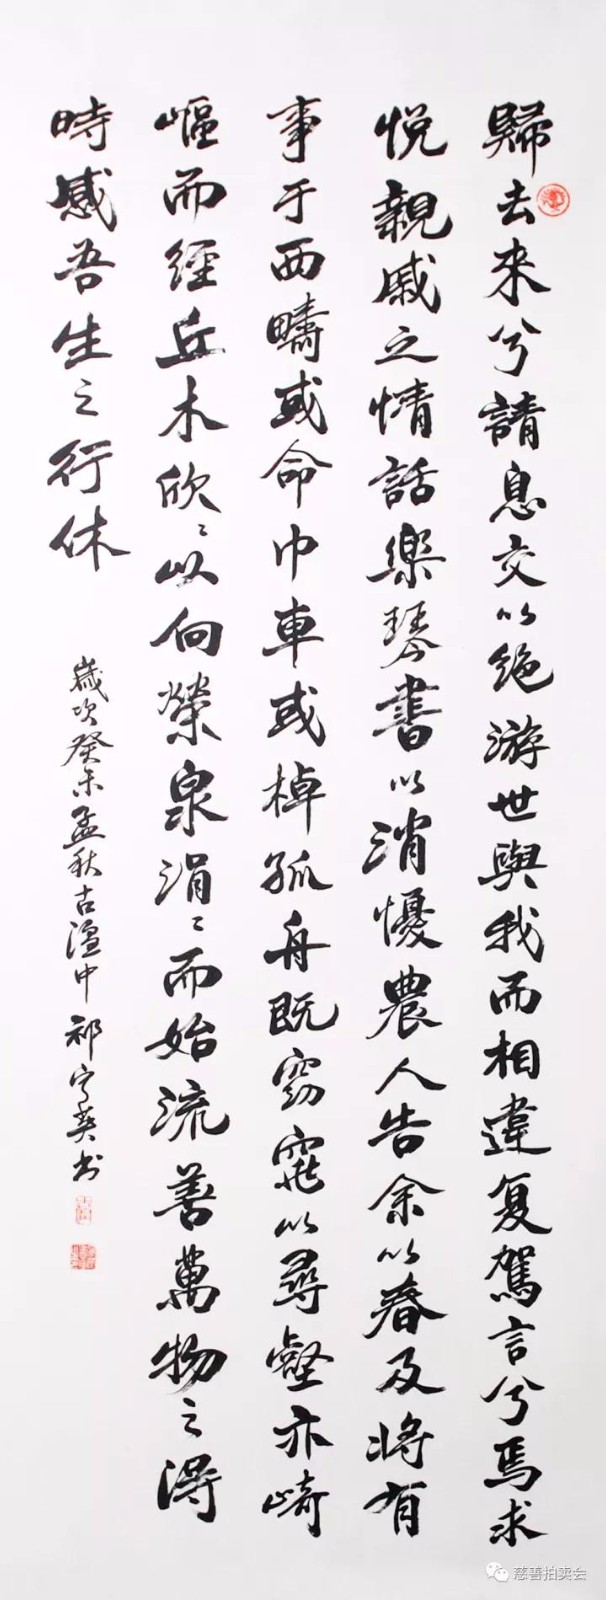 歸去来兮請息交以绝游世與我而相違复駕言兮焉求
悦親戚之情話樂琴書以消憂農人告余以春及将有
事于西疇或命巾車或棹孤舟既窈窕以尋壑亦崎
嶇而經丘木欣〻以向榮泉涓〻而始流善萬物之得
時感吾生之行休
歲次癸未孟秋古温中祁宁英书
慈善拍卖会